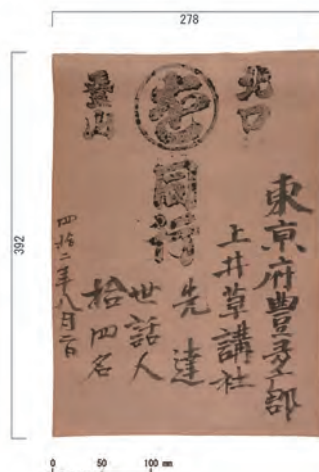 278
392
北口
登山
同行
東京府豊多郡
上井草講社
先達
世話人
拾四名
四拾二年八月二日
0 50 100 mm